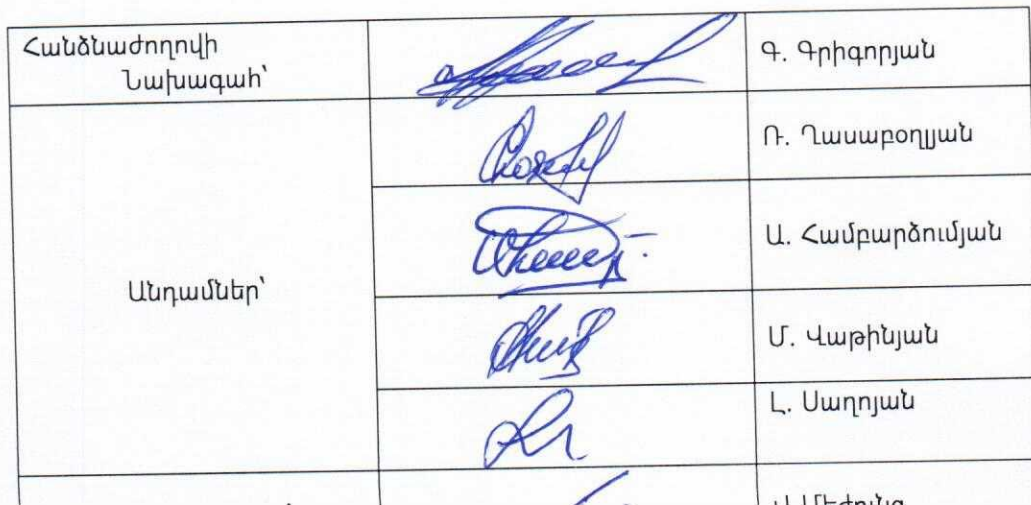 Հանձնաժողովի
Նախագահ՝
Գ. Գրիգորյան
Անդամներ՝
Ռ. Ղասաբօղլյան
Ա. Համբարձումյան
Մ. Վաթինյան
Լ. Սաղոյան